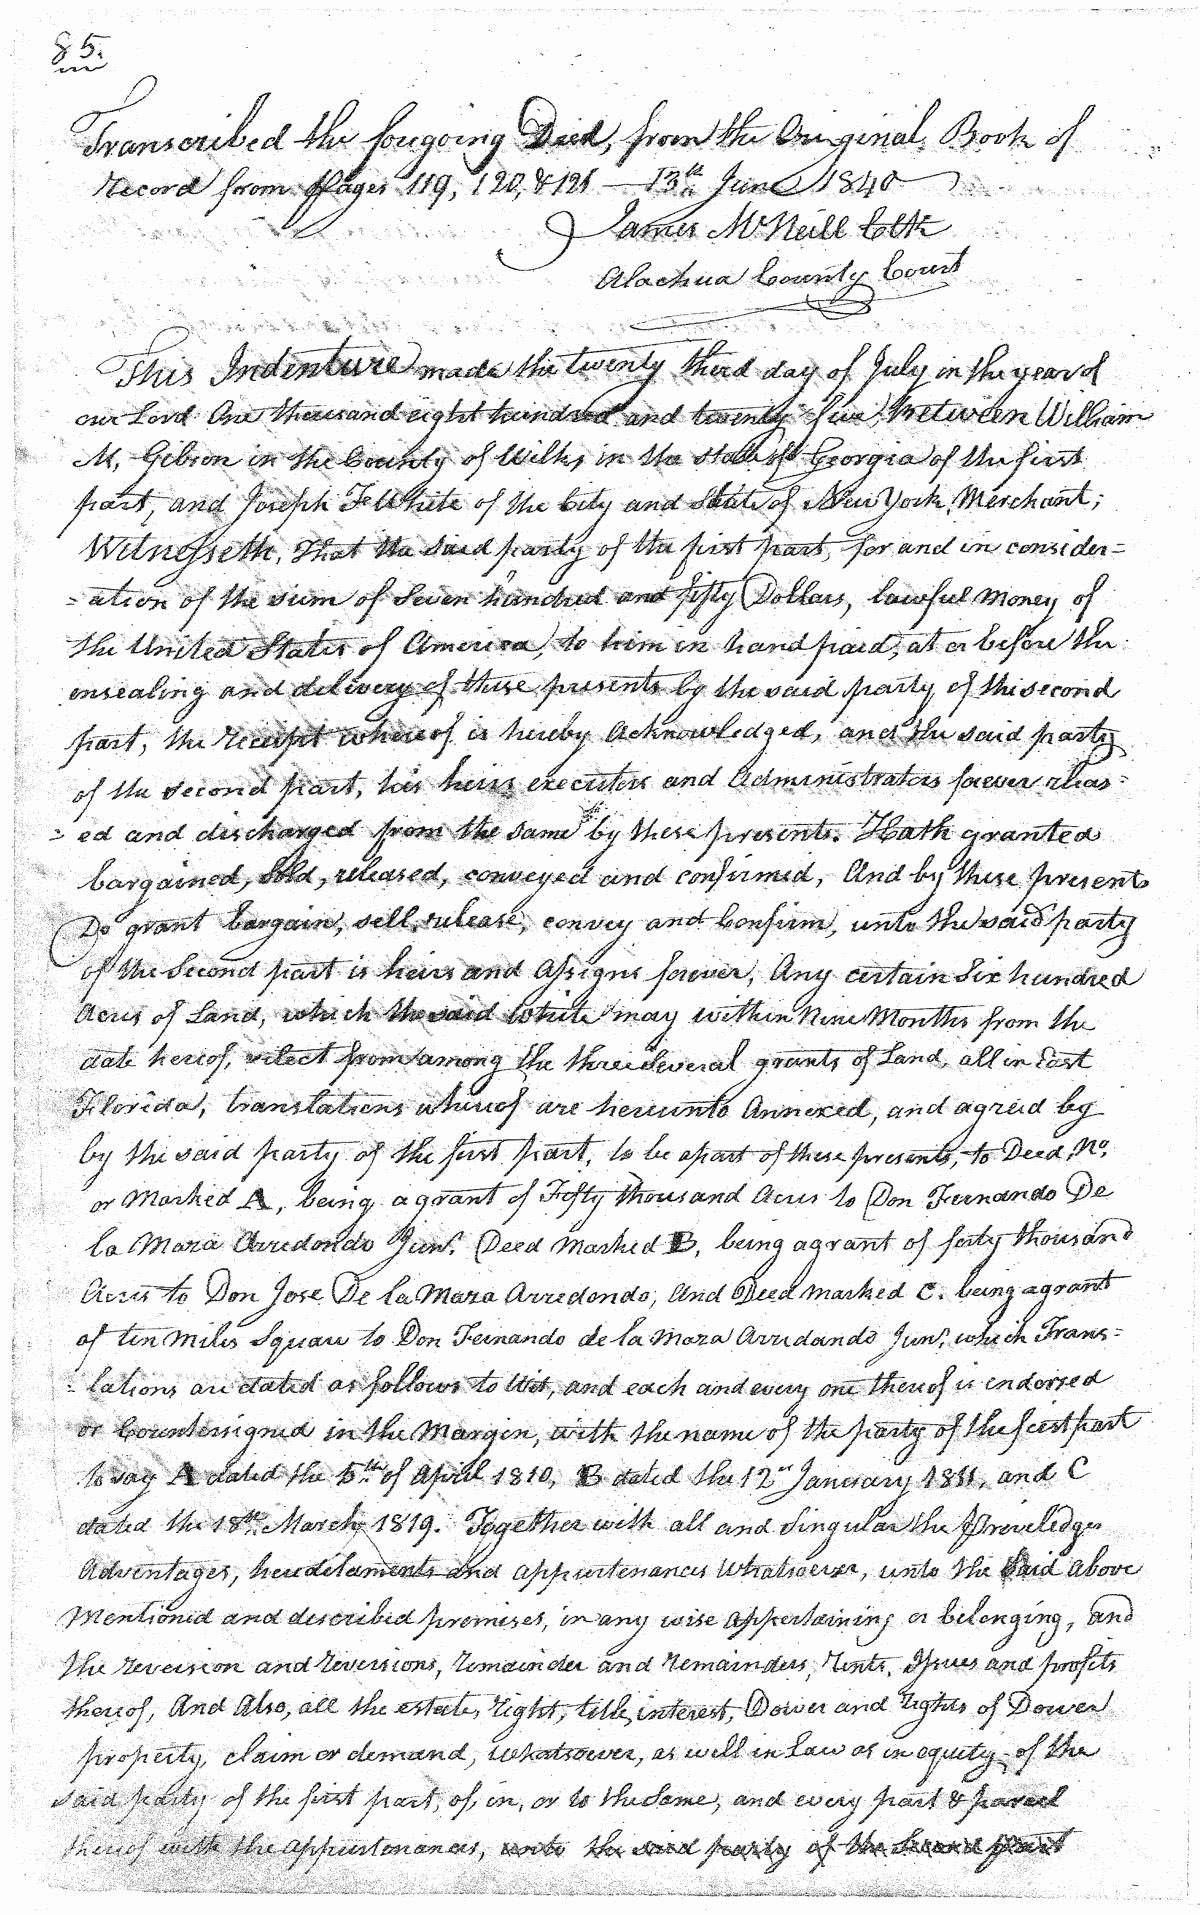 85.
Transcribed the foregoing Deed, from the Original Book of
Record from Pages 119, 120, & 121 — 13th June 1840
James McNeill Clk
Alachua County Court
This Indenture made the twenty third day of July in the year of
our Lord One thousand eight hundred and twenty five, Between William
M. Gibson in the County of Wilks in the state of Georgia of the first
part, and Joseph F White of the City and State of New York, Merchant;
Witnesseth, That the said party of the first part, for and in consider=
=ation of the sum of Seven hundred and fifty Dollars, lawful Money of
the United States of America, to him in hand paid, at or before the
ensealing and delivery of these presents by the said party of the second
part, the receipt whereof is hereby Acknowledged, and the said party
of the second part, his heirs executors and Administrators forever releas=
=ed and discharged from the same by these presents. Hath granted
bargained, sold, released, conveyed and confirmed, And by these presents
Do grant bargain, sell, release, convey and Confirm, unto the said party
of the Second part is heirs and Assigns forever, Any certain Six hundred
Acres of Land, which the said White may within Nine Months from the
date hereof, select from among the three Several grants of Land, all in East
Florida, translations whereof are hereunto Annexed, and agreed by
by the said party of the first part, to be apart of these presents, to Deed, No.
or Marked A, being a grant of Fifty thousand Acres to Don Fernando De
la Maza Arredondo Junr. Deed Marked B, being a grant of forty thousand
Acres to Don Jose De la Maza Arredondo, And Deed marked C. being a grant
of ten Miles Square to Don Fernando de la Maza Arredando Junr, which Trans=
=lations are dated as follows to Wit, and each and every one thereof is endorsed
or Countersigned in the Margin, with the name of the party of the first part
to say A dated the 5th of April 1810, B dated the 12 January 1811, and C
dated the 18th March 1819. Together with all and Singular the Priveledges
Advantages, heredilaments and appurtenances Whatsoever, unto the Said above
Mentioned and described premises, in any wise Appertaining or belonging, and
the reversion and reversions, remainder and remainders, rents, Issues and profits
thereof, And Also, all the estate, right, title, interest, Dower and rights of Dower
property, claim or demand, Whatsoever, as well in Law as in equity, of the
said party of the first part, of, in, or to the Same, and every part & parcel
thereof with the appurtenances, unto the said party of the Second part